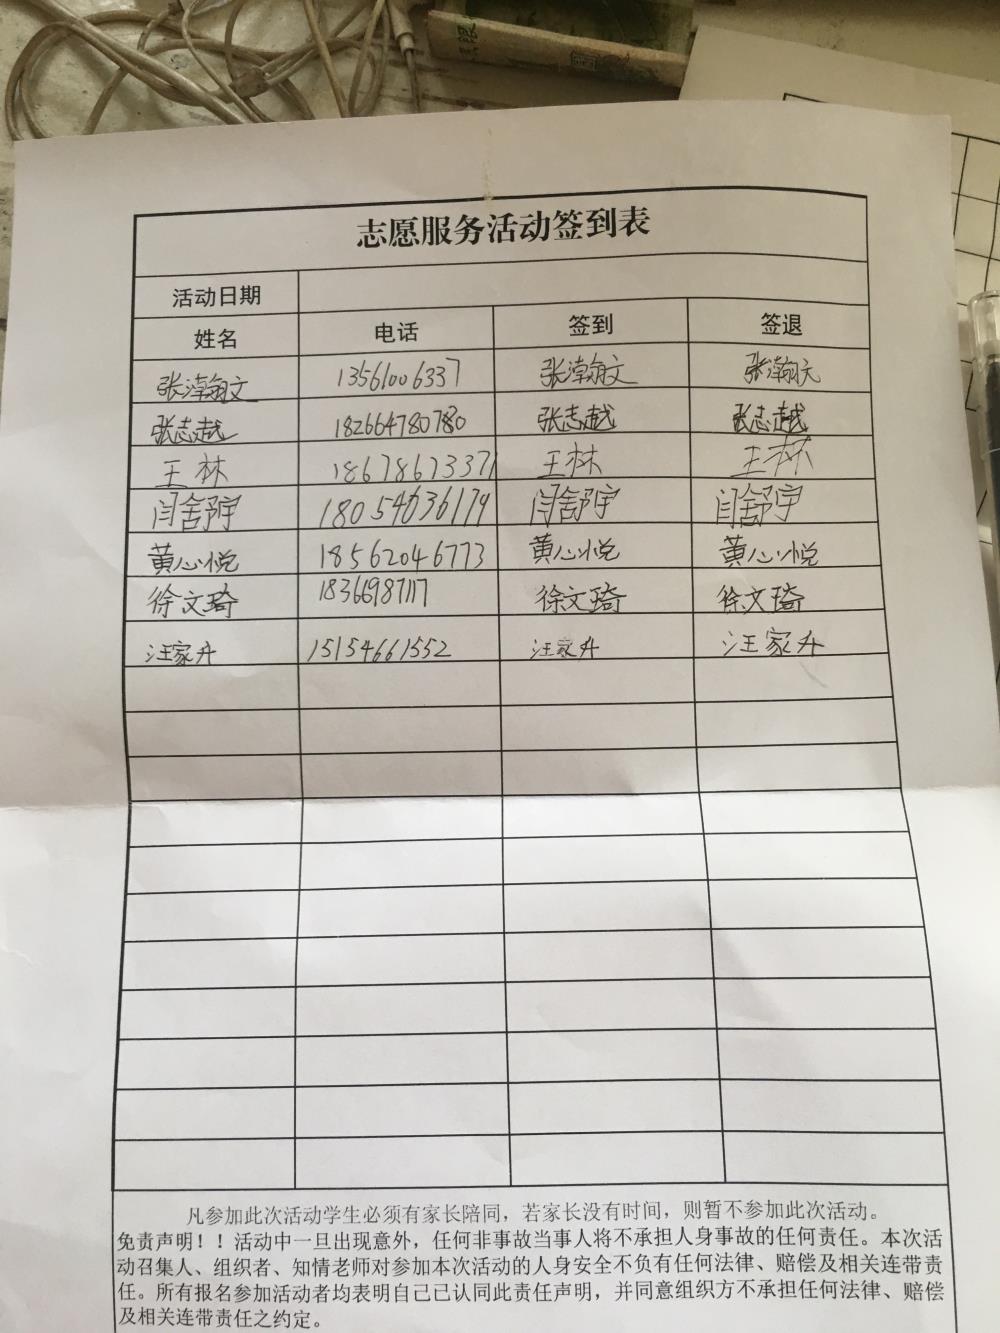 志愿服务活动签到表
活动日期
姓名 电话 签到 签退
张瀚文 13561006337 张瀚文 张瀚文
张志越 18266478078 张志越 张志越
王林 18678673371 王林 王林
闫舒宇 18054636179 闫舒宇 闫舒宇
黄心悦 18562046773 黄心悦 黄心悦
徐文琦 18366987117 徐文琦 徐文琦
汪家升 15154661552 汪家升 汪家升
凡参加此次活动学生必须有家长陪同，若家长没有时间，则暂不参加此次活动。
免责声明！！活动中一旦出现意外，任何非事故当事人将不承担人身事故的任何责任。本次活
动召集人、组织者、知情老师对参加本次活动的人身安全不负有任何法律、赔偿及相关连带责
任。所有报名参加活动者均表明自己己认同此责任声明，并同意组织方不承担任何法律、赔偿
及相关连带责任之约定。